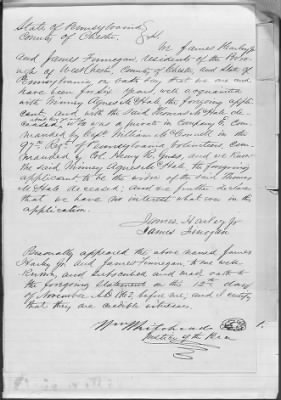 State of Pennsylvania
County of Chester } ss
We James Harley Jr
and James Finnegan, residents of the Boro-
ugh of West Chester, County of Chester and State of
Pennsylvania on oath say that we are and
have been for six years well acquainted
with Winney Agnes McHale the foregoing appli-
cant and with the said Thomas McHale de-
ceased, who was a private in Company C, Com-
manded by Capt. William McConnell in the
97th Regt of Pennsylvania Volunteers, com-
manded by Col. Henry R. Guss, and we know
the said Winney Agnes McHale, the foregoing
applicant to be the widow of the said Thomas
McHale deceased; and we further declare
that we have no interest whatever in this
application.
James Harley Jr
James Finegan
Personally appeared the above named James
Harley Jr. and James Finnegan, to me well
known, and subscribed and made oath to
the foregoing statement on this 12th day
of November A.D. 1862, before me; and I certify
that they are credible witnesses.
Wm Whitehead
Justice of the Peace